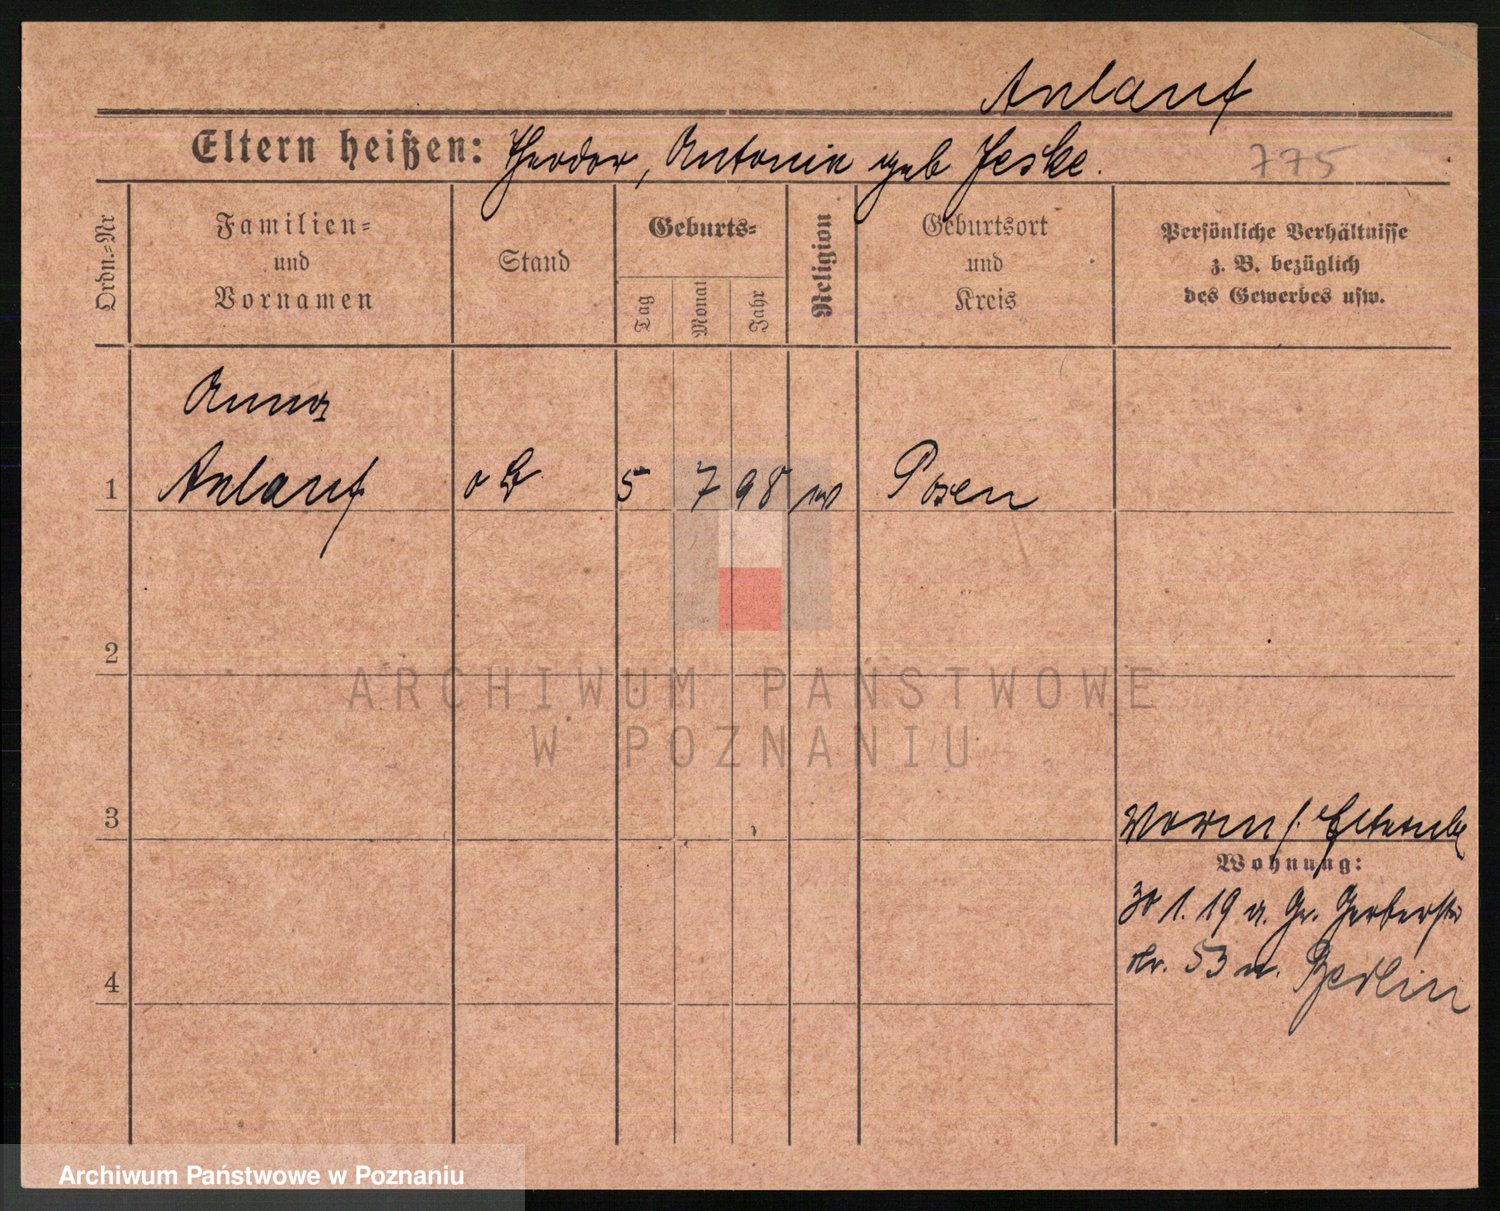 Anlauf
Eltern heißen: Theodor, Antonie geb Jeske.
775
Ordn.=Nr
Familien=
und
Vornamen
Stand
Geburts=
Tag
Monat
Jahr
Religion
Geburtsort
und
Kreis
Persönliche Verhältnisse
z. B. bezüglich
des Gewerbes usw.
Anna
1 Anlauf o B 5 7 98 Posen
2
ARCHIWUM PAŃSTWOWE
W POZNANIU
3
Wohnung:
30 1. 19 a. Gr. Gerberstr
Nr. 53 n. Berlin
4
Archiwum Państwowe w Poznaniu